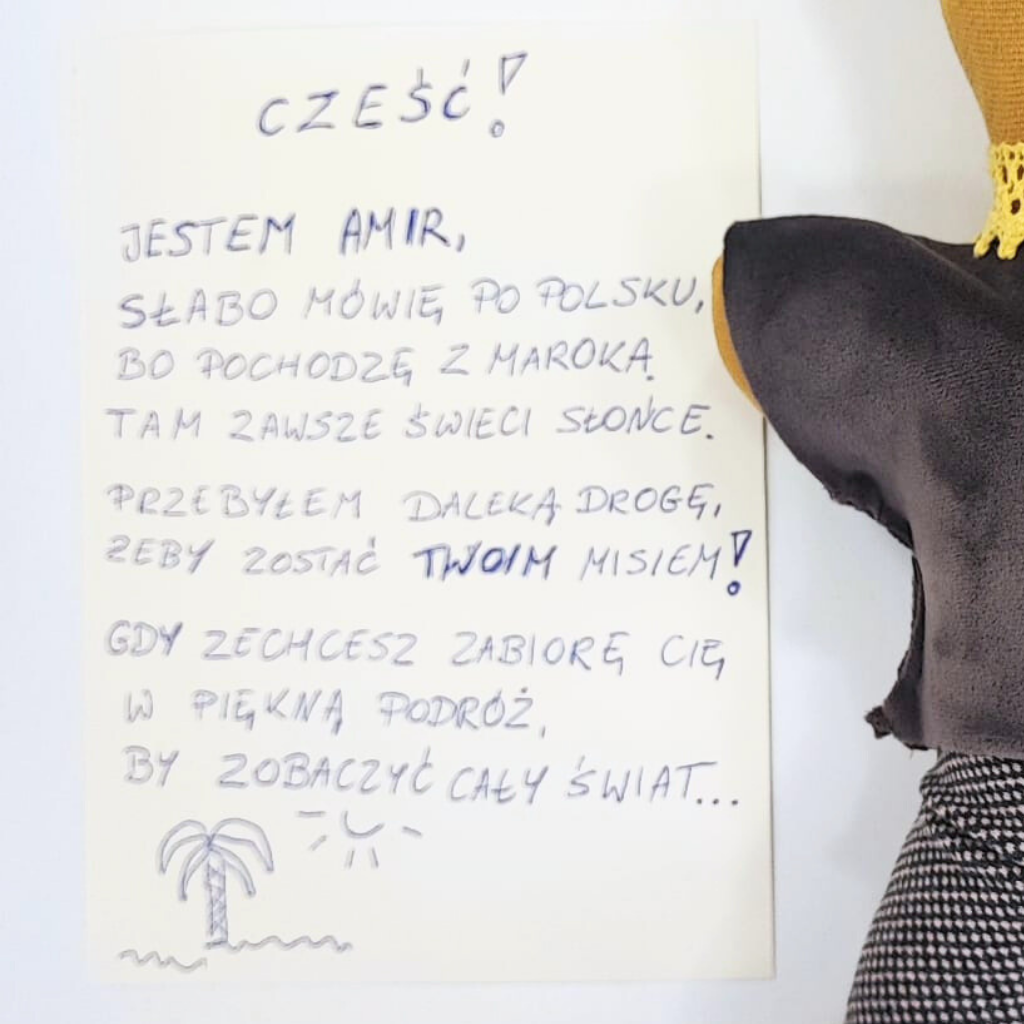 CZEŚĆ!
JESTEM AMIR,
SŁABO MÓWIĘ PO POLSKU,
BO POCHODZĘ Z MAROKA.
TAM ZAWSZE ŚWIECI SŁOŃCE.
PRZEBYŁEM DALEKĄ DROGĘ,
ŻEBY ZOSTAĆ TWOIM MISIEM!
GDY ZECHCESZ ZABIORĘ CIĘ
W PIĘKNĄ PODRÓŻ,
BY ZOBACZYĆ CAŁY ŚWIAT...